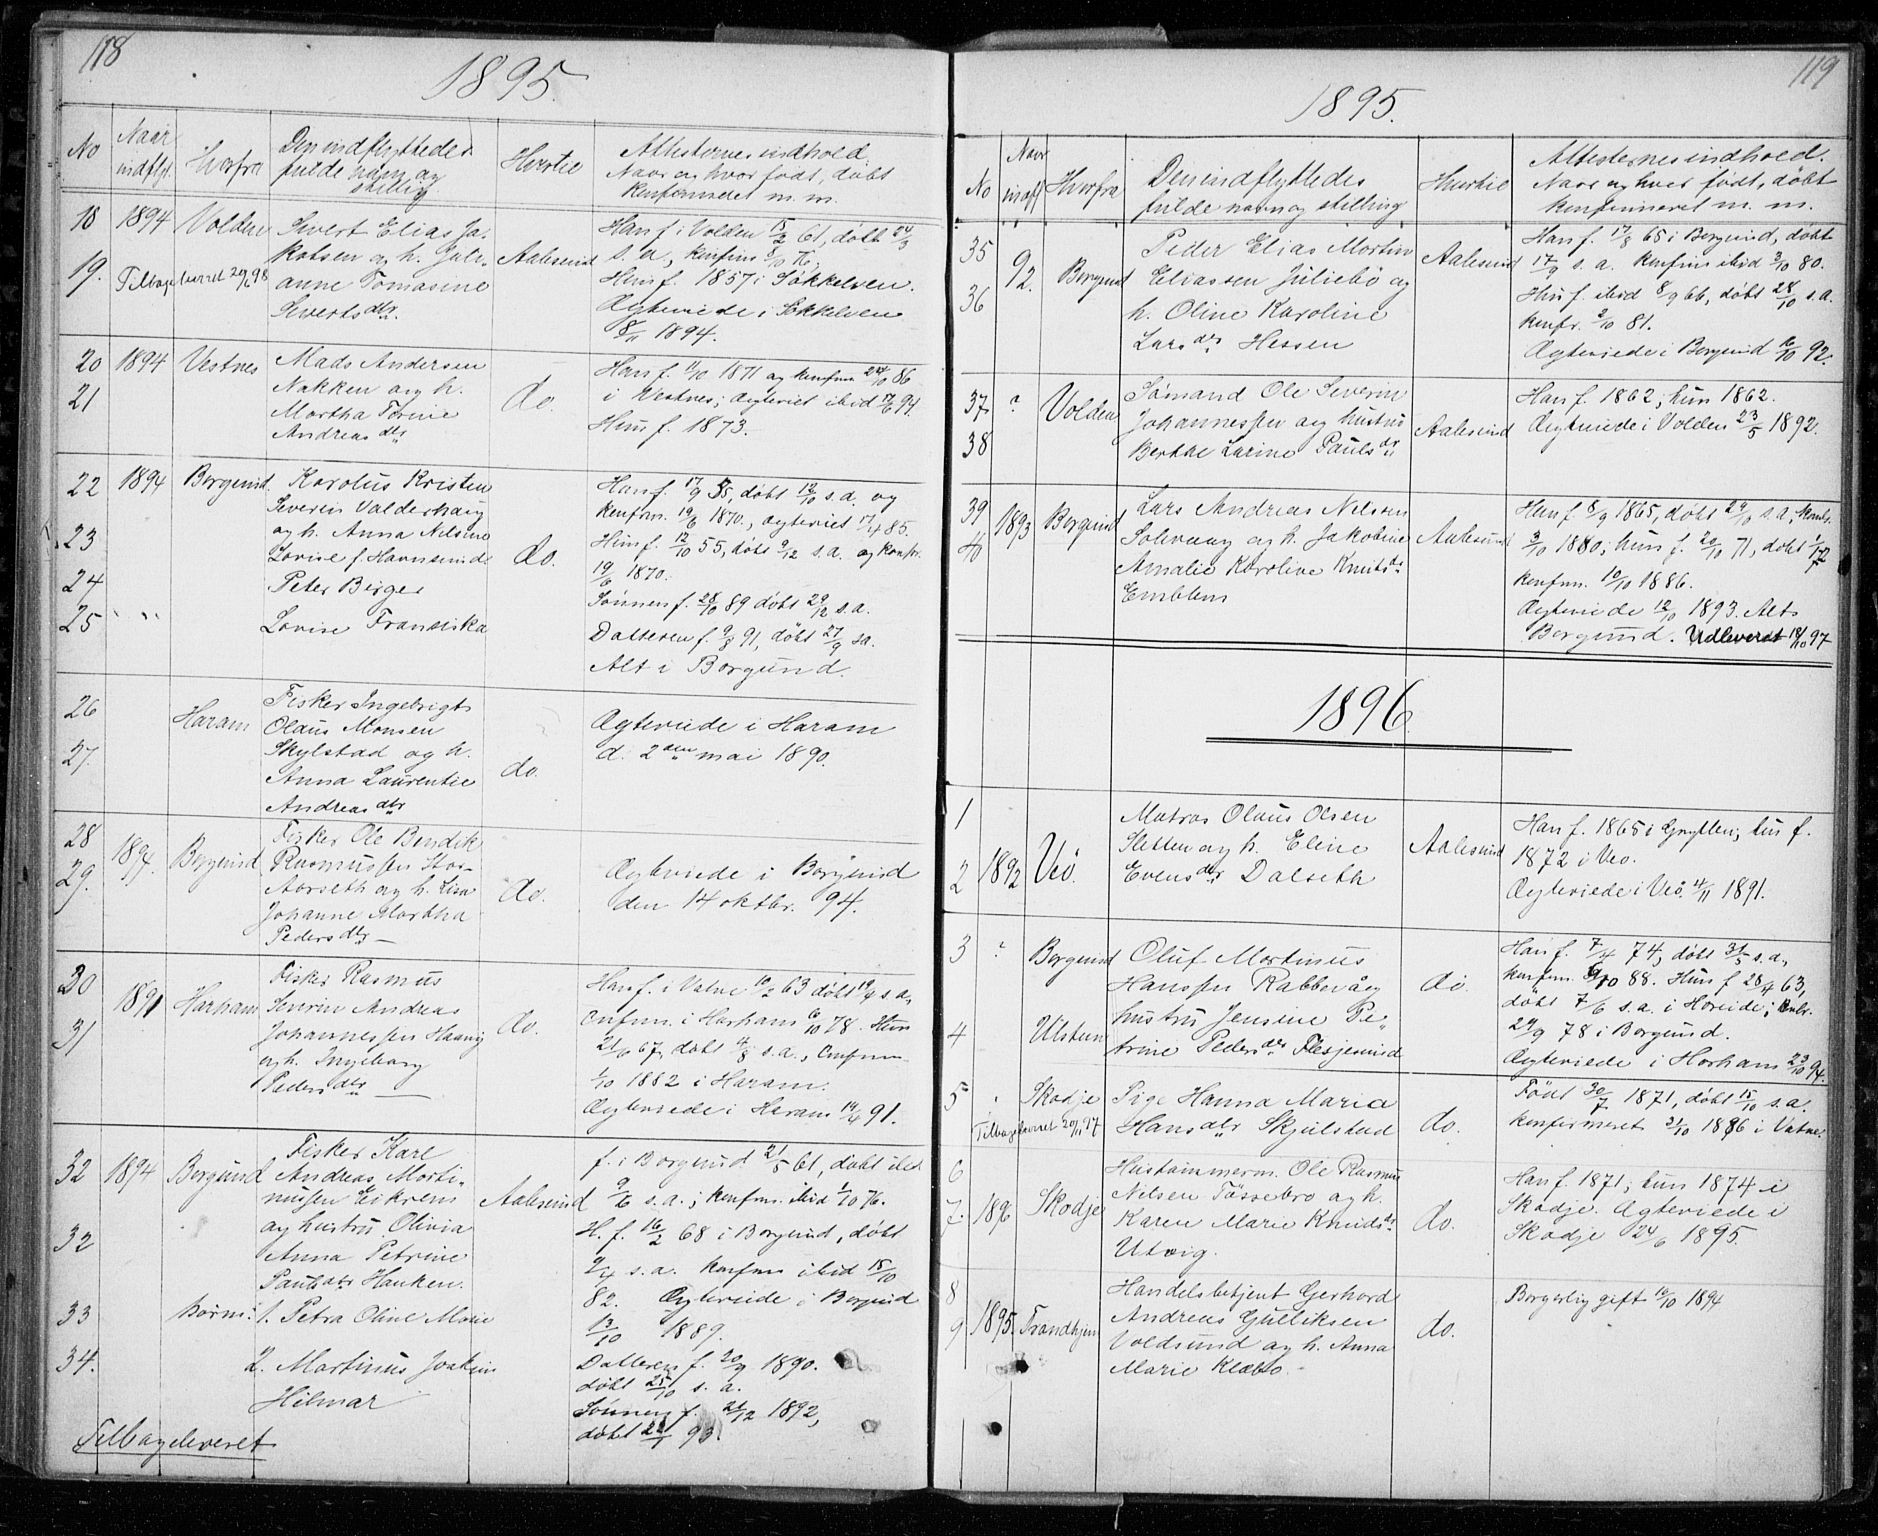 118
1895.
No
Naar indflyt.
Hvorfra
Den indflyttedes fulde navn og stilling
Hvortil
Attesternes indhold.
Naar og hvor født, døbt
konfirmeret m. m.
18 1894 Volden Sivert Elias Ja-
19. kobsen og h. Juli-
anne Tomasine
Siverts dtr.
Tilbageleveret 29/6 98
Aalesund
Han f. i Volden 15/2 61, døbt 24/3
s. a., konfirm 8/10 76.
Hun f. 1857 i Søkkelven.
Ægteviede i Søkkelven
8/11 1894.
20 1894 Vestnes Mads Andersen
21 Nakken og h.
Martha Torine
Andreas dtr
do.
Han f. 11/10 1871 og konfirm 24/10 86
i Vestnes; ægteviet ibid 17/6 94
Hun f. 1873.
22 1894 Borgund. Karolus Kristen
Severin Valderhaug
23 og h. Anna Nelsine
Lovise f. Havnsund
24 Peter Birger
25 " " Lovise Franciska
do.
Han f. 17/9 55, døbt 12/10 s. a. og
konfirm. 19/6 1870., ægteviet 17/4 85.
Hun f. 12/10 55, døbt 9/12 s. a. og konfr.
19/6 1870.
Sønnen f. 28/10 89 døbt 29/12 s. a.
Datteren f. 9/8 91, døbt 27/9 s a.
Alt i Borgund.
26 Haram Fisker Ingebrigt
Olaus Monsen
27. Skylstad og h.
Anna Laurentie
Andreas dtr
do.
Ægteviede i Haram
d. 2 den mai 1890.
28 1894. Borgund Fisker Ole Bendik
29. Rasmussen Stor-
Aarseth og h. Lisa
Johanne Martha
Peders dtr —
do.
Ægteviede i Borgund
den 14 oktbr. 94.
30 1891 Harham Fisker Rasmus
Severin Andreas
31 Johannessen Haavig
og h. Ingeborg
Peders dtr —
do.
Han f. i Vatne 10/2 63 døbt 19/4 s. a,
Confirm. i Harham 6/10 78. Hun
21/6 67, døbt 4/8 s. a., Confirm
1/10 1882 i Haram.
Ægteviede i Haram 14/6 91.
32 1894 Borgund Fisker Kare
Andreas Marti-
nussen Eikrem
og hustru Olivia
32 Anna Petrine
Pauls dtr Hanken.
33 Børn: 1. Petra Oline Marie
34. 2. Martinus Joakim
Hilmar
Aalesund
f. i Borgund 21/5 61, døbt ibid
9/6 s. a.; konfirm. ibid 1/10 76.
H. f. 16/2 68 i Borgund, døbt
2/4 s. a. konfirm ibid 15/10
82. Ægteviede i Borgund
13/10 1889.
Datteren f. 20/9 1890.
døbt 25/10 s. a.
Sønnen f. 21/12 1892,
døbt 22/1 93.
Tilbageleveret
119
1895.
No
Naar indfl
Hvorfra
Den indflyttedes
fulde navn og stilling
Hvortil
Attesternes indhold.
Naar og hvor født, døbt
konfirmeret m. m.
35 92. Borgund Peder Elias Martin
36 Eliassen Juliebø og
h. Oline Karoline
Lars dtr Hessen
Aalesund
Han f. 17/8 65 i Borgund, døbt
17/9 s. a. konfirm ibid 3/10 80.
Hun f. ibid 8/9 66, døbt 28/10 s. a.
konfr. 2/10 81.
Ægteviede i Borgund 16/10 92.
37 ? Volden Sømand Ole Severin
Johannessen og hustru
38 Berthe Larine Pauls dtr
Aalesund
Han f. 1862; hun 1862.
Ægteviede i Volden 23/5 1892.
39 1893 Borgund Lars Andreas Nelsen
40 Solevaag og h. Jakobine
Amalie Karoline Knuts dtr
Emblem
Aalesund
Han f. 8/9 1865, døbt 29/10 s. a; konfr.
3/10 1880; hun f. 20/10 71, døbt 17/12
konfirm. 10/10 1886.
Ægteviede 12/10 1893. Alt i
Borgund. Udleveret 18/10 97
1896.
1 Matros Olaus Olsen
2 1892 Veø. Sletten og h. Eline
Evens dtr Dalseth
Aalesund
Han f. 1865 i Grytten; hun f.
1872 i Veø.
Ægteviede i Veø. 4/11 1891.
3 ? Borgund Oluf Martinus
Hansen Rabbevåg
4 Ulsten hustru Jensine Pe-
trine Peders dtr Flesjesund
do.
Han f. 7/4 74, døbt 31/5 s. a,
konfirm. 9/10 88. Hun f 28/4 63,
døbt 7/6 s. a. i Hareide; konfr.
29/9 78 i Borgund.
Ægteviede i Harham 23/10 94.
5 Skodje Pige Hanna Maria
Hans dtr Skjelstad
Tilbageleveret 20/11 97
do.
Født 30/7 1871, døbt 15/10 s. a.
konfirmeret 31/10 1886 i Vatne.
6 Hustømmerm. Ole Rasmus
7. 1896 Skodje Nilsen Fossebro og h.
Karen Marie Knuds dtr
Utvig.
do.
Han f. 1871; hun 1874 i
Skodje. Ægteviede i
Skodje 24/6 1895
8 Handelsbetjent Gerhard
9 1895. Trondhjem Andreas Gulliksen
Voldsund og h. Anna
Marie Klæbo.
do.
Borgerlig gift 16/10 1894